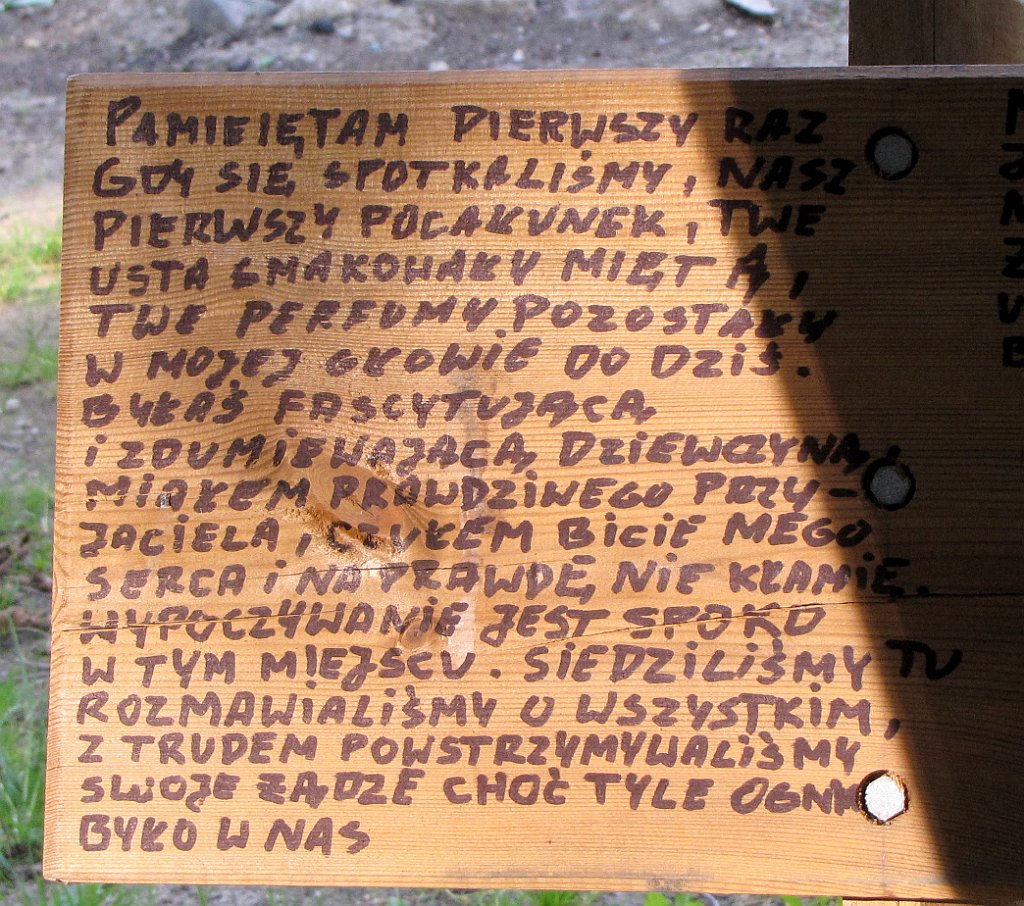 PAMIEIĘTAM PIERWSZY RAZ
GDY SIĘ SPOTKALIŚMY, NASZ
PIERWSZY POCAŁUNEK, TWE
USTA SMAKOWAŁY MIĘTĄ,
TWE PERFUMY POZOSTAŁY
W MOJEJ GŁOWIE DO DZIŚ.
BYŁAŚ FASCYTUJĄCĄ
I ZDUMIEWAJĄCĄ DZIEWCZYNĄ,
MIAŁEM PRAWDZIWEGO PRZY-
JACIELA, CZUŁEM BICIE MEGO
SERCA I NAPRAWDĘ, NIE KŁAMIĘ.
WYPOCZYWANIE JEST SPOKO
W TYM MIEJSCU. SIEDZILIŚMY TU
ROZMAWIALIŚMY O WSZYSTKIM,
Z TRUDEM POWSTRZYMYWALIŚMY
SWOJE ŻĄDZE CHOĆ TYLE OGNIA
BYŁO W NAS